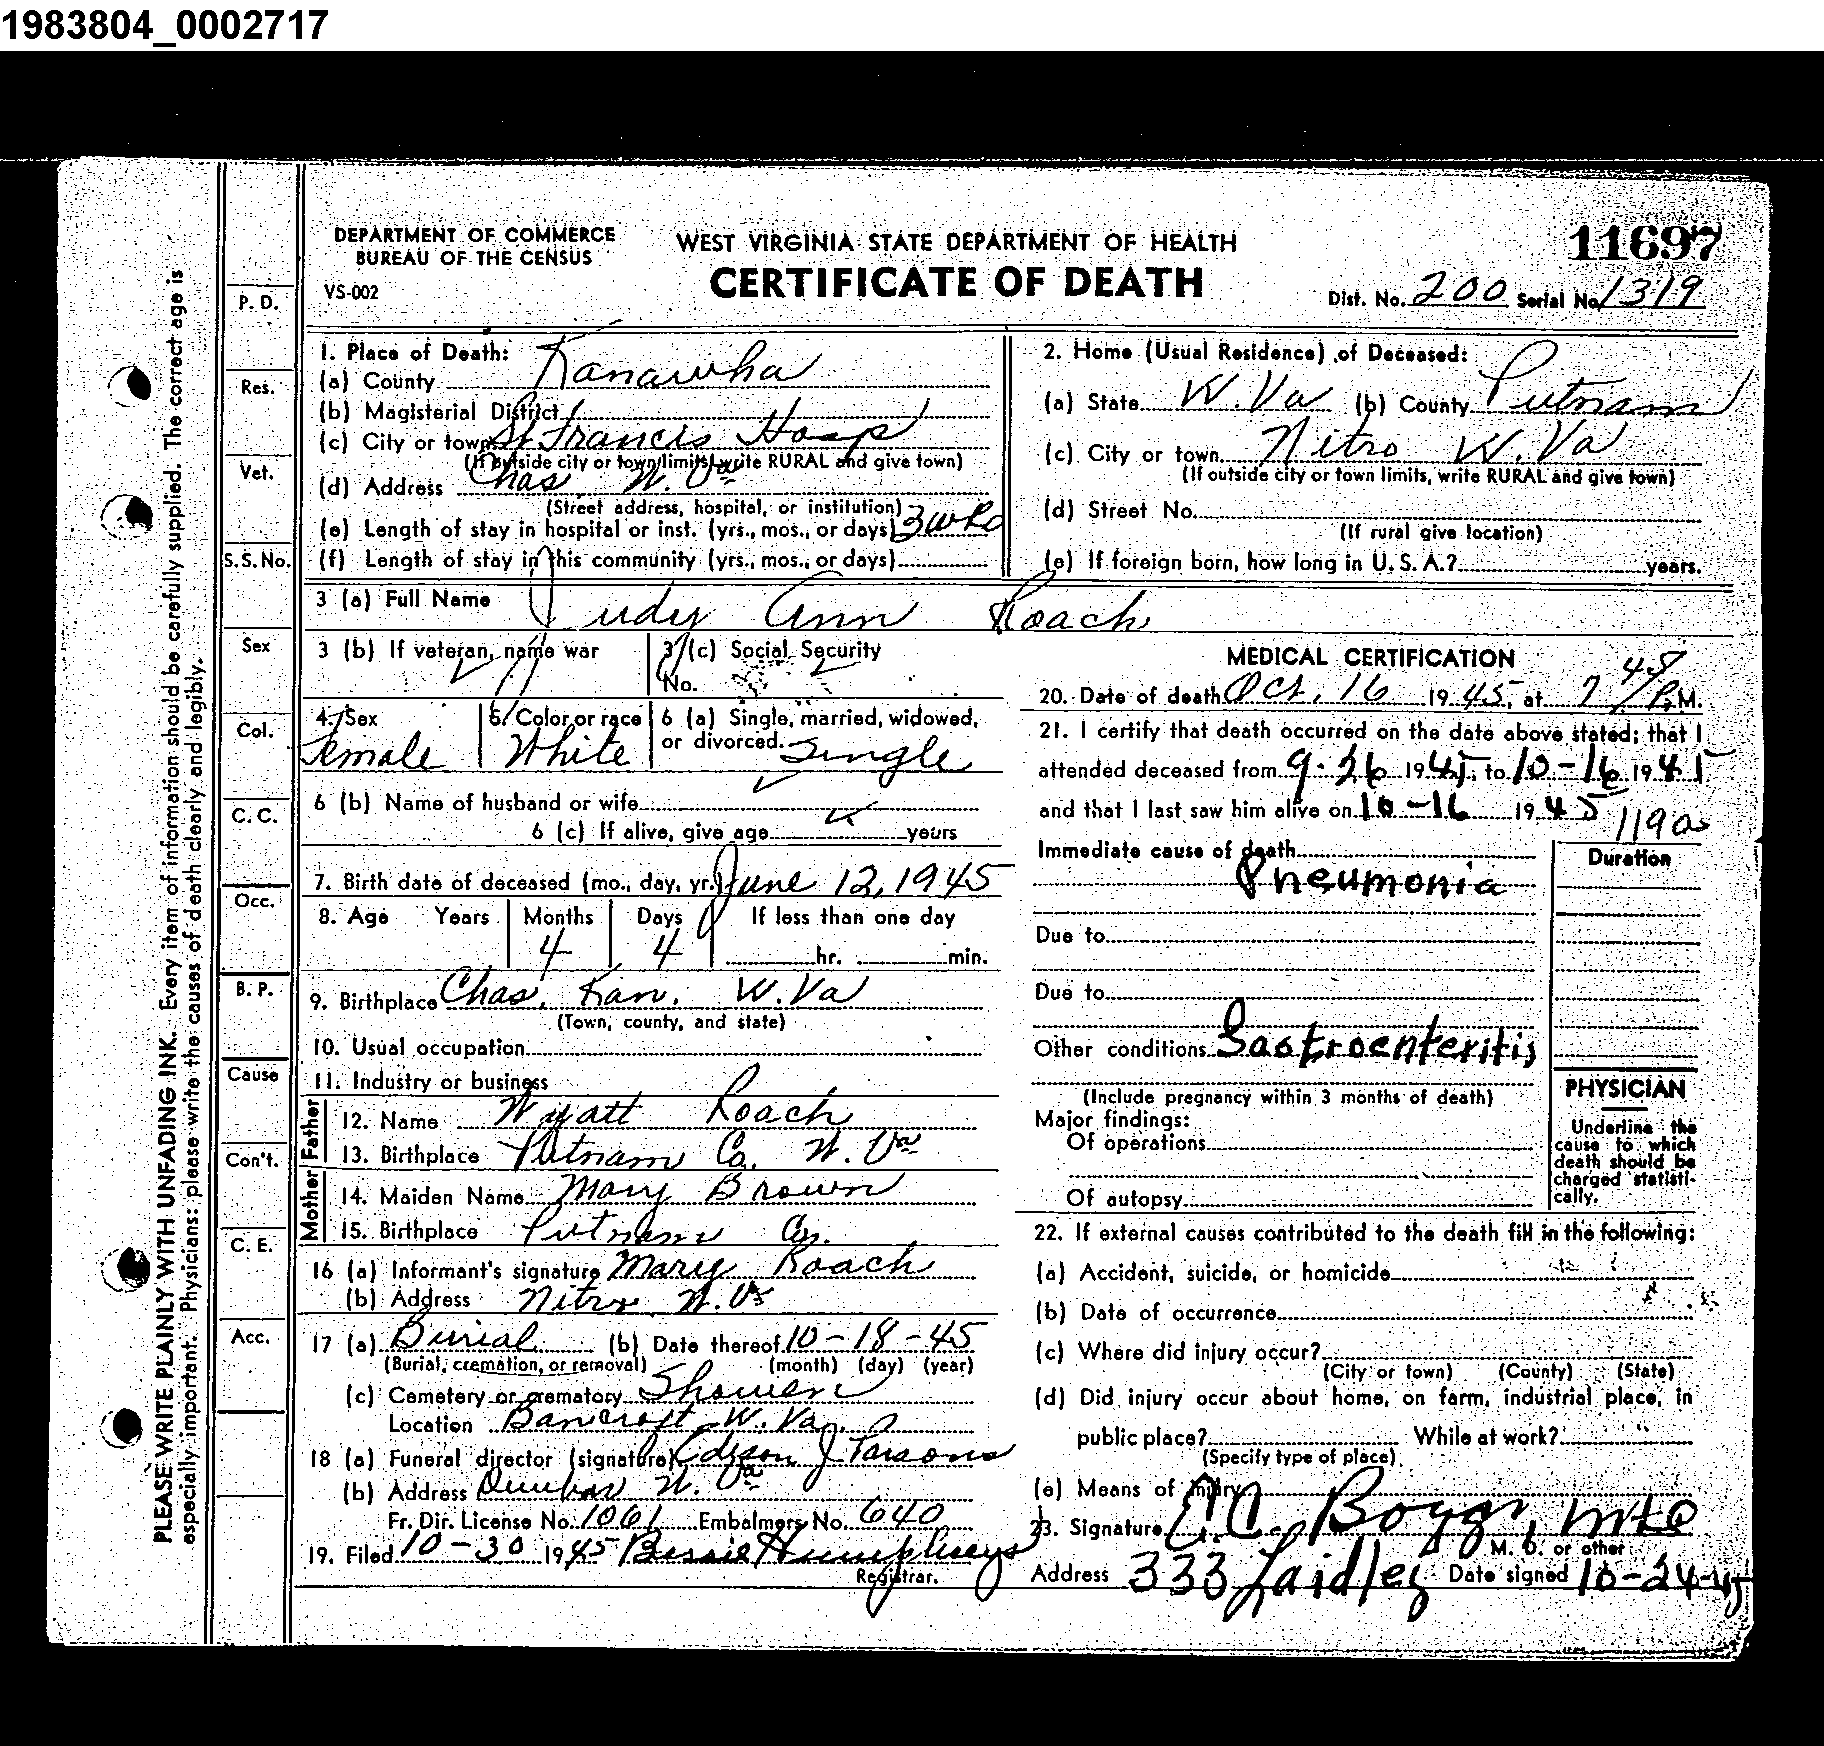 1983804_0002717
DEPARTMENT OF COMMERCE
BUREAU OF THE CENSUS
VS-002
WEST VIRGINIA STATE DEPARTMENT OF HEALTH
CERTIFICATE OF DEATH
11697
Dist. No. 200 Serial No. 1319
PLEASE WRITE PLAINLY WITH UNFADING INK. Every item of information should be carefully supplied. The correct age is
especially important. Physicians: please write the causes of death clearly and legibly.
P. D.
Res.
Vet.
S. S. No.
Sex
Col.
C. C.
Occ.
B. P.
Cause
Con't.
C. E.
Acc.
1. Place of Death:
(a) County Kanawha
(b) Magisterial District
(c) City or town St Francis Hosp
(If outside city or town limits, write RURAL and give town)
(d) Address Chas W. Va
(Street address, hospital, or institution)
(e) Length of stay in hospital or inst. (yrs., mos., or days) 3 wks
(f) Length of stay in this community (yrs., mos., or days)
2. Home (Usual Residence) of Deceased:
(a) State W. Va (b) County Putnam
(c) City or town Nitro W. Va
(If outside city or town limits, write RURAL and give town)
(d) Street No.
(If rural give location)
(e) If foreign born, how long in U. S. A.? years.
3 (a) Full Name Judy Ann Roach
3 (b) If veteran, name war
3 (c) Social Security
No.
4. Sex Female
5. Color or race White
6 (a) Single, married, widowed,
or divorced. Single
6 (b) Name of husband or wife
6 (c) If alive, give age years
7. Birth date of deceased (mo., day, yr.) June 12, 1945
8. Age Years Months Days If less than one day
4 4 hr. min.
9. Birthplace Chas. Kan. W. Va
(Town, county, and state)
10. Usual occupation
11. Industry or business
Father
12. Name Wyatt Roach
13. Birthplace Putnam Co. W. Va
Mother
14. Maiden Name Mary Brown
15. Birthplace Putnam Co.
16 (a) Informant's signature Mary Roach
(b) Address Nitro W. Va
17 (a) Burial (b) Date thereof 10-18-45
(Burial, cremation, or removal) (month) (day) (year)
(c) Cemetery or crematory Showen
Location Bancroft W. Va.
18 (a) Funeral director (signature) Edison J Parsons
(b) Address Dunbar W. Va
Fr. Dir. License No. 1061 Embalmers No. 640
19. Filed 10-30 1945 Bessie Humphreys
Registrar.
MEDICAL CERTIFICATION
20. Date of death Oct. 16 1945, at 7 45 P.M.
21. I certify that death occurred on the date above stated; that I
attended deceased from 9-26 1945, to 10-16 1945
and that I last saw him alive on 10-16 1945
119a
Immediate cause of death
Duration
Pneumonia
Due to
Due to
Other conditions Gastroenteritis
(Include pregnancy within 3 months of death)
Major findings:
Of operations
Of autopsy
PHYSICIAN
Underline the
cause to which
death should be
charged statisti-
cally.
22. If external causes contributed to the death fill in the following:
(a) Accident, suicide, or homicide
(b) Date of occurrence
(c) Where did injury occur?
(City or town) (County) (State)
(d) Did injury occur about home, on farm, industrial place, in
public place? While at work?
(Specify type of place)
(e) Means of injury
23. Signature Boggs, M.D.
M. D. or other
Address 333 Laidley Date signed 10-24-45